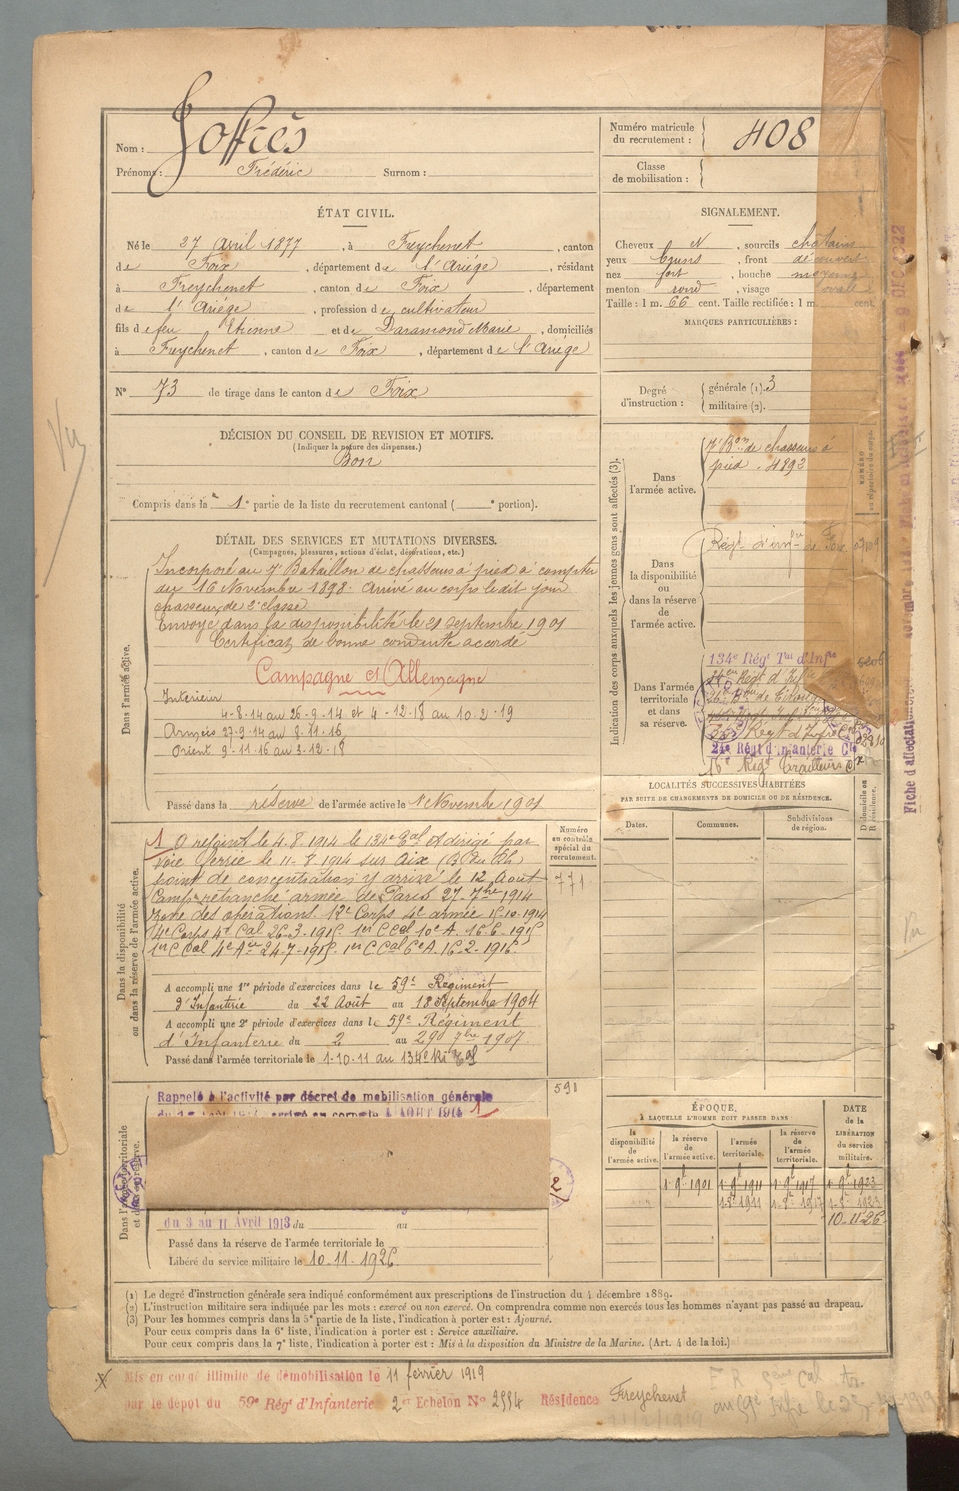 Nom : Joffrès
Prénoms : Frédéric Surnom :
Numéro matricule du recrutement : 408
Classe de mobilisation :
ÉTAT CIVIL.
Né le 27 Avril 1877, à Freychenet, canton
de Foix, département de l'Ariège, résidant
à Freychenet, canton de Foix, département
de l'Ariège, profession de cultivateur
fils de feu Etienne et de Daramond Marie, domiciliés
à Freychenet, canton de Foix, département de l'Ariège
N° 73 de tirage dans le canton de Foix
SIGNALEMENT.
Cheveux N, sourcils châtains
yeux bruns, front découvert
nez fort, bouche moyenne
menton rond, visage ovale
Taille : 1 m. 66 cent. Taille rectifiée : 1 m. cent.
MARQUES PARTICULIÈRES :
Degré d'instruction :
générale (1). 3
militaire (2).
DÉCISION DU CONSEIL DE REVISION ET MOTIFS.
(Indiquer la nature des dispenses.)
Bon
Compris dans la 1e partie de la liste du recrutement cantonal ( e portion).
DÉTAIL DES SERVICES ET MUTATIONS DIVERSES.
(Campagnes, blessures, actions d'éclat, décorations, etc.)
Dans l'armée active.
Incorporé au 7e Bataillon de chasseurs à pied à compter
du 16 Novembre 1898. Arrivé au corps le dit jour
chasseur de 2e classe
Envoyé dans la disponibilité le 21 septembre 1901
Certificat de bonne conduite accordé
Campagne et Allemagne
Interieur
4-8-14 au 26-9-14 et 4-12-18 au 10-2-19
Armées 27-9-14 au 8-11-16
Orient 9-11-16 au 3-12-18
Passé dans la réserve de l'armée active le 1er Novembre 1901
Indication des corps auxquels les jeunes gens sont affectés (3).
Dans l'armée active.
7e Bon de chasseurs à
pied. 4892
NUMÉRO
au répertoire du corps.
Dans la disponibilité ou dans la réserve de l'armée active.
Régt d'infie de Foix
Dans l'armée territoriale et dans sa réserve.
134e Régt Tal d'Infie
24e Régt d'Infanterie Cal
16e Régt Tirailleurs
LOCALITÉS SUCCESSIVES HABITÉES
PAR SUITE DE CHANGEMENTS DE DOMICILE OU DE RÉSIDENCE.
Dates. Communes. Subdivisions de région.
D domicile ou R résidence.
Dans la disponibilité
ou dans la réserve de l'armée active.
Numéro au contrôle spécial du recrutement.
771
1 A rejoint le 4.8.1914 le 134e tal et dirigé par
voie ferrée le 11-8-1914 sur Aix (B du Rh)
point de concentration y arrivé le 12 Août
Camp retranché armée de Paris 27-7bre 1914
Zone des opérations. 12e Corps 4e armée 15-10-1914
4e Corps 4e Cal 26-3-1915. 1er C Cal 10e A. 16-6-1915
1er C Cal 4e Aée 24-7-1915. 1er C Cal 6e A. 16-2-1916
A accompli une 1re période d'exercices dans le 59e Régiment
d'Infanterie du 22 Août au 18 Septembre 1904
A accompli une 2e période d'exercices dans le 59e Régiment
d'Infanterie du 2 au 29 7bre 1907
Passé dans l'armée territoriale le 1-10-11 au 134e Rt tal
Dans l'armée territoriale et dans sa réserve.
591
Rappelé à l'activité par décret de mobilisation générale
AOUT 1914 1
du 3 au 11 Avril 1913 du au
Passé dans la réserve de l'armée territoriale le
Libéré du service militaire le 10-11-1926
ÉPOQUE
À LAQUELLE L'HOMME DOIT PASSER DANS
la disponibilité de l'armée active.
la réserve de l'armée active.
l'armée territoriale.
la réserve de l'armée territoriale.
DATE de la LIBÉRATION du service militaire.
1-9bre 1901 1-9bre 1911 1-9bre 1917 1-9bre 1923
10-11-26
(1) Le degré d'instruction générale sera indiqué conformément aux prescriptions de l'instruction du 4 décembre 1889.
(2) L'instruction militaire sera indiquée par les mots : exercé ou non exercé. On comprendra comme non exercés tous les hommes n'ayant pas passé au drapeau.
(3) Pour les hommes compris dans la 5e partie de la liste, l'indication à porter est : Ajourné.
Pour ceux compris dans la 6e liste, l'indication à porter est : Service auxiliaire.
Pour ceux compris dans la 7e liste, l'indication à porter est : Mis à la disposition du Ministre de la Marine. (Art. 4 de la loi.)
Mis en congé illimité de démobilisation le 11 février 1919
par le dépôt du 59e Régt d'Infanterie 2e Echelon N° 2994 Résidence Freychenet
Vu